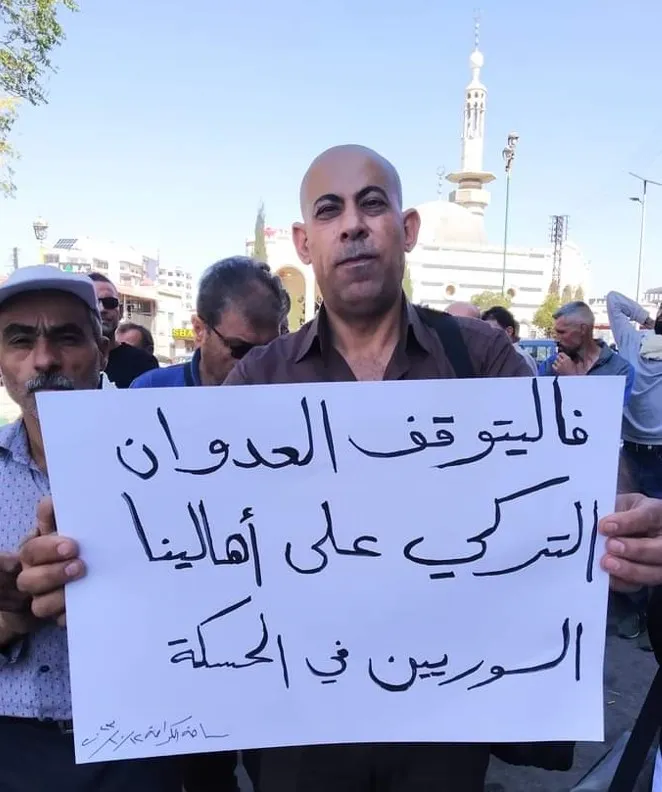 فاليتوقف العدوان
التركي على أهالينا
السوريين في الحسكة
ساحة الكرامة